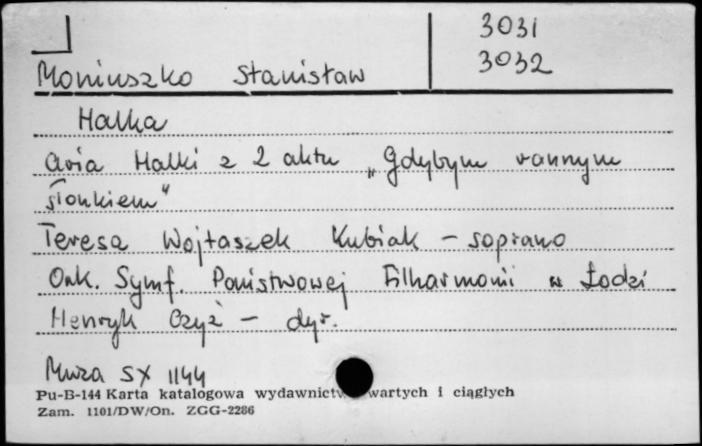 3031
3032
Moniuszko Stanisław
Halka
Aria Halki z 2 aktu „Gdybym rannym
słonkiem"
Teresa Wojtaszek Kubiak – soprano
Ork. Symf. Państwowej Filharmonii w Łodzi
Henryk Czyż – dyr.
Muza SX 1144
Pu-B-144 Karta katalogowa wydawnictw wartych i ciągłych
Zam. 1101/DW/On. ZGG-2286